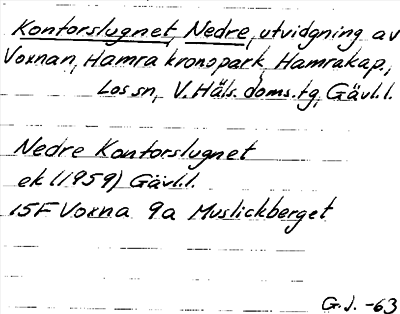 Kontorslugnet, Nedre, utvidgning av
Voxnan, Hamra kronopark, Hamra kap.,
Los sn, V. Häls. doms. tg, Gävl.l.
Nedre Kontorslugnet
ek (1959) Gävl.l.
15F Voxna 9a Muslickberget
G.J. -63